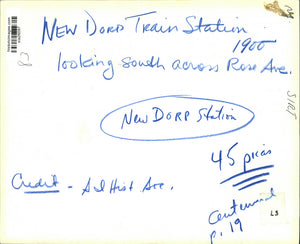 New Dorp Train Station
1900
looking south across Rose Ave.
New Dorp Station
45 picas
Credit - S.I. Hist. Soc.
Centennial
p. 19
LS